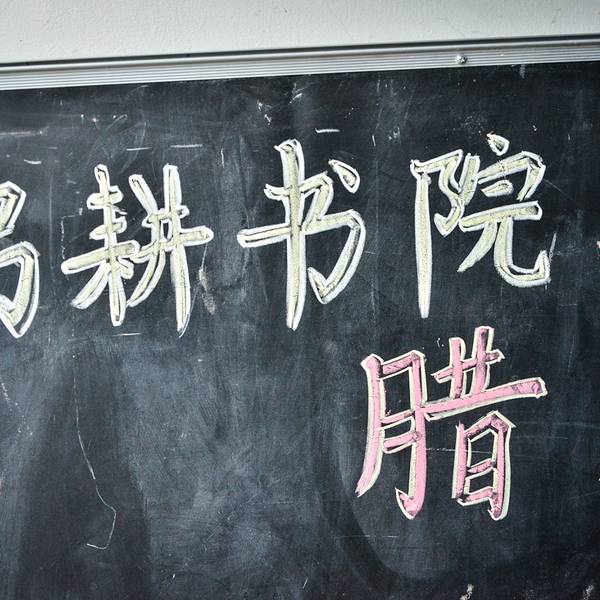 耕书院
腊